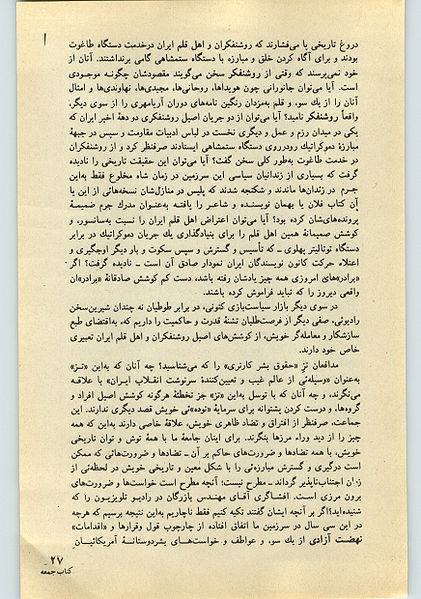 دروغ تاریخی پا می‌فشارند که روشنفکران و اهل قلم ایران درخدمت دستگاه طاغوت
بودند و برای آگاه کردن خلق و مبارزه با دستگاه ستمشاهی گامی برنداشتند. آنان از
خود نمی‌پرسند که وقتی از روشنفکر سخن می‌گویند مقصودشان چگونه موجودی
است. آیا می‌توان جانورانی چون هویداها، روحانی‌ها، مجیدی‌ها، نهاوندی‌ها و امثال
آنان را از یك سو، و قلم به‌مزدان رنگین نامه‌های دوران آریامهری را از سوی دیگر،
واقعاً روشنفکر نامید؟ آیا می‌توان از دو جریان اصیل روشنفکری دو دههٔ اخیر ایران که
یکی در میدان رزم و عمل و دیگری نخست در لباس ادبیات مقاومت و سپس در جبههٔ
مبارزهٔ دموکراتیك رودرروی دستگاه ستمشاهی ایستادند صرفنظر کرد و از روشنفکران
در خدمت طاغوت به‌طور کلی سخن گفت؟ آیا می‌توان این حقیقت تاریخی را نادیده
گرفت که بسیاری از زندانیان سیاسی این سرزمین در زمان شاه مخلوع فقط به‌این
جرم در زندان‌ها ماندند و شکنجه شدند که پلیس در منازل‌شان نسخه‌هائی از این یا
آن کتاب فلان یا بهمان نویسنده و شاعر را یافته به‌عنوان مدرك جرم ضمیمهٔ
پرونده‌های‌شان کرده بود؟ آیا می‌توان اعتراض اهل قلم ایران را نسبت به‌سانسور، و
کوشش صمیمانهٔ همین اهل قلم را برای بنیادگذاری یك جریان دموکراتیك در برابر
دستگاه توتالیتر پهلوی ـ که تأسیس و گسترش و سپس سکوت و بار دیگر اوجگیری و
اعتلاء حرکت کانون نویسندگان ایران نمودار صادق آن است ـ نادیده گرفت؟ اگر
«برادر»های امروزی همه چیز یادشان رفته باشد، دست کم کوشش صادقانهٔ «برادر»ان
واقعی دیروز را که نباید فراموش کرده باشند.
در سوی دیگر بازار سیاست‌بازی کنونی، در برابر طوطیان نه چندان شیرین‌سخن
رادیوئی، صفی دیگر از فرصت‌طلبان تشنهٔ قدرت و حاکمیت را داریم که، به‌اقتضای طبع
سازشکار و معامله‌گر خویش، از کوشش‌های اصیل روشنفکران و اهل قلم ایران تعبیری
خاص خود دارند.
مدافعان تز «حقوق بشر کارتری» را که می‌شناسید؟ چه آنان که به‌این «تز»
به‌عنوان «وسیله‌ئی از عالم غیب و تعیین‌کنندهٔ سرنوشت انقلاب ایران» با علاقه
می‌نگرند، و چه آنان که با توسل به‌این «تز» جز تخطئهٔ هرگونه کوشش اصیل افراد و
گروه‌ها، و درست کردن پشتوانه برای سرمایهٔ «توده»ئی خویش قصد دیگری ندارند. این
جماعت، صرفنظر از افتراق و تضاد ظاهری خویش، علاقهٔ خاصی دارند به‌این که همه
چیز را از دید وراء مرزها بنگرند. برای اینان جامعهٔ ما با همهٔ توش و توان تاریخی
خویش، با همه تضادها و ضرورت‌های حاکم بر آن ـ تضادها و ضرورت‌هائی که ممکن
است درگیری و گسترش مبارزه‌ئی را با شکل معین و تاریخی خویش در لحظه‌ئی از
زمان اجتناب‌ناپذیر گرداند ـ مطرح نیست؛ آنچه مطرح است خواست‌ها و ضرورت‌های
برون مرزی است. افشاگری آقای مهندس بازرگان در رادیو تلویزیون را که
شنیده‌اید؟اگر بر آنچه ایشان گفتند تکیه کنیم فقط ناچاریم به‌این نتیجه برسیم که هرچه
در این سی سال در سرزمین ما اتفاق افتاده از چارچوب قول وقرارها و «اقدامات»
نهضت آزادی از یك سو، و عواطف و خواست‌های بشردوستانهٔ آمریکائیان
۲۷
کتاب جمعه